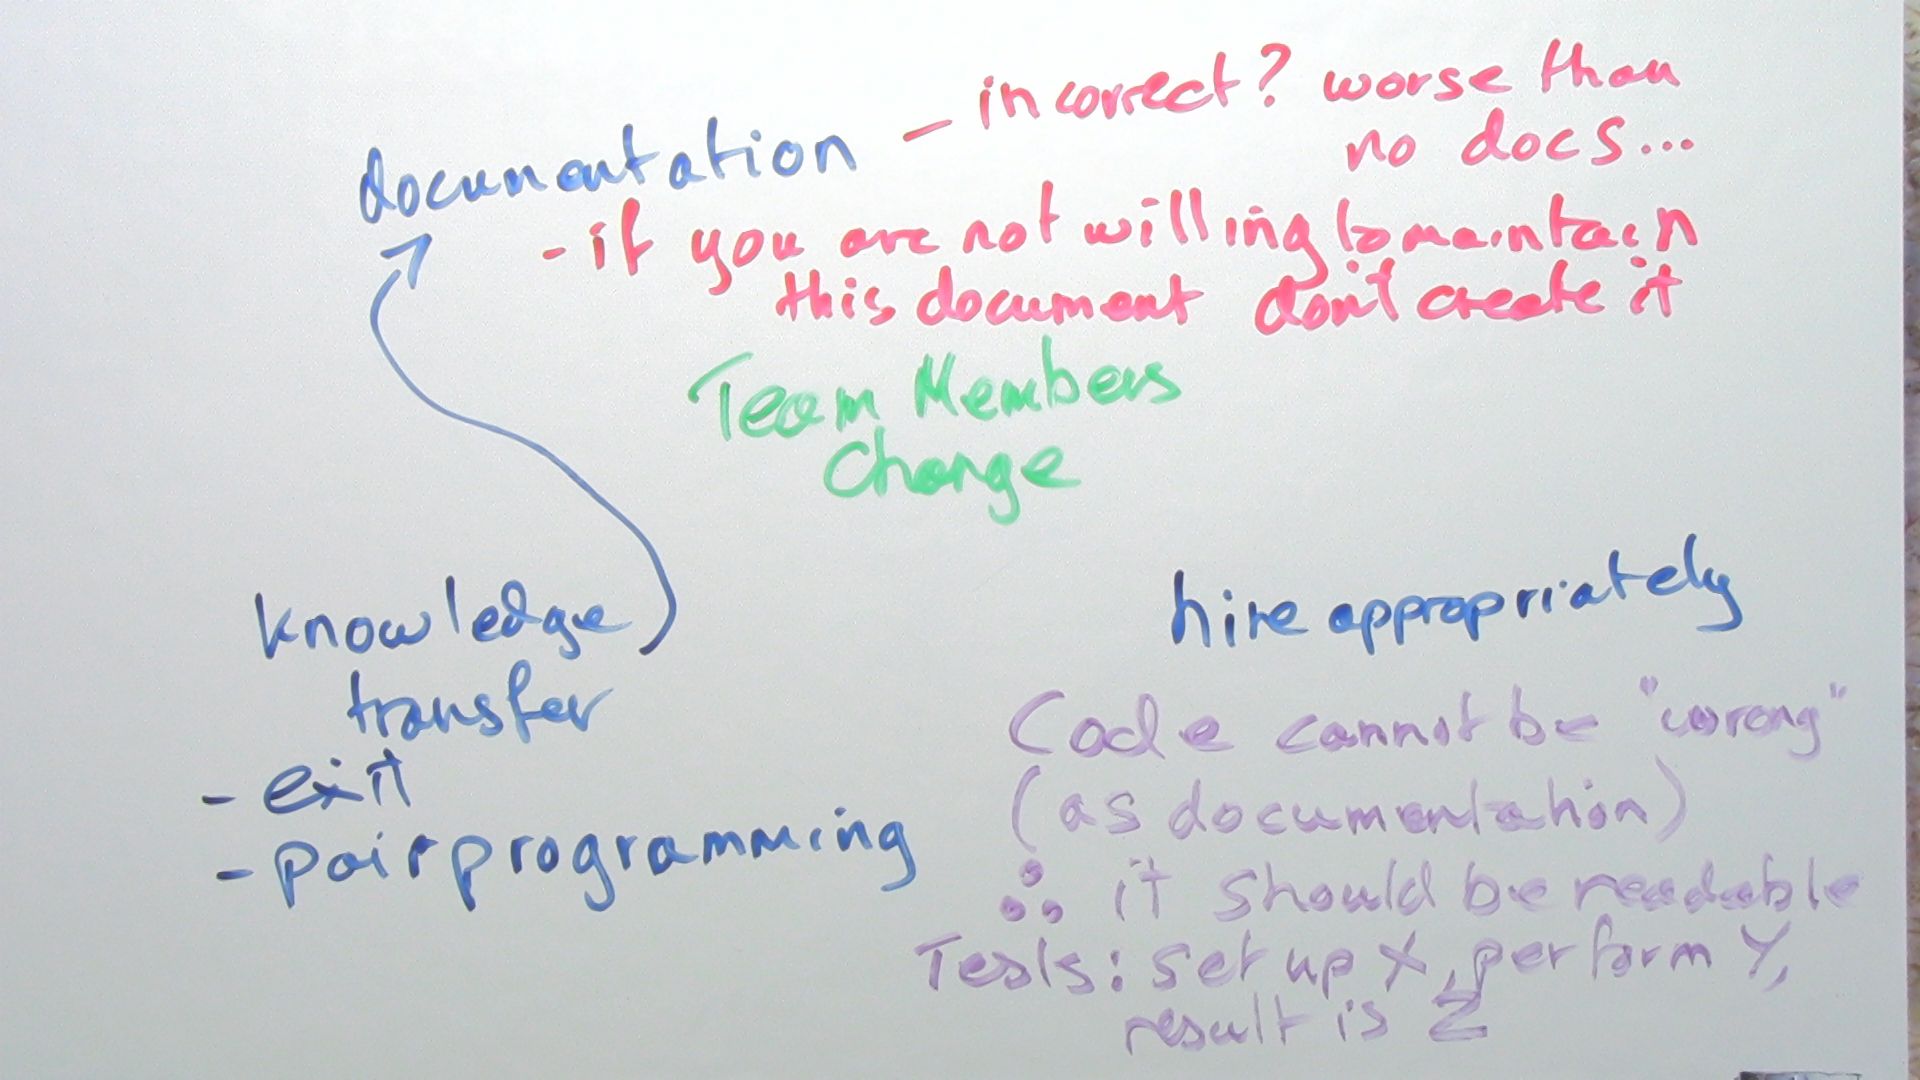 documentation - incorrect? worse than
no docs...
- if you are not willing to maintain
this document don't create it
Team Members
Change
knowledge
transfer
- exit
- pair programming
hire appropriately
Code cannot be "wrong"
(as documentation)
∴ it should be readable
Tests: set up X, perform Y,
result is Z